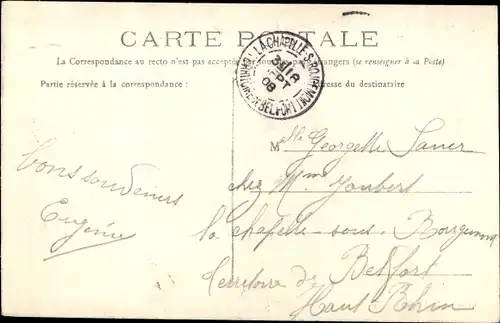 CARTE POSTALE
La Correspondance au recto n'est pas acceptée par tous les pays étrangers (se renseigner à la Poste)
Partie réservée à la correspondance :
Adresse du destinataire
LACHAPELLE-S-ROUGEMONT
TERRITOIRE DE BELFORT
18
SEPT
08
Mlle Georgette Saner
chez Mme Joubert
la chapelle-sous-Rougemont
territoire de Belfort
Haut Rhin
bons souvenirs
Eugénie